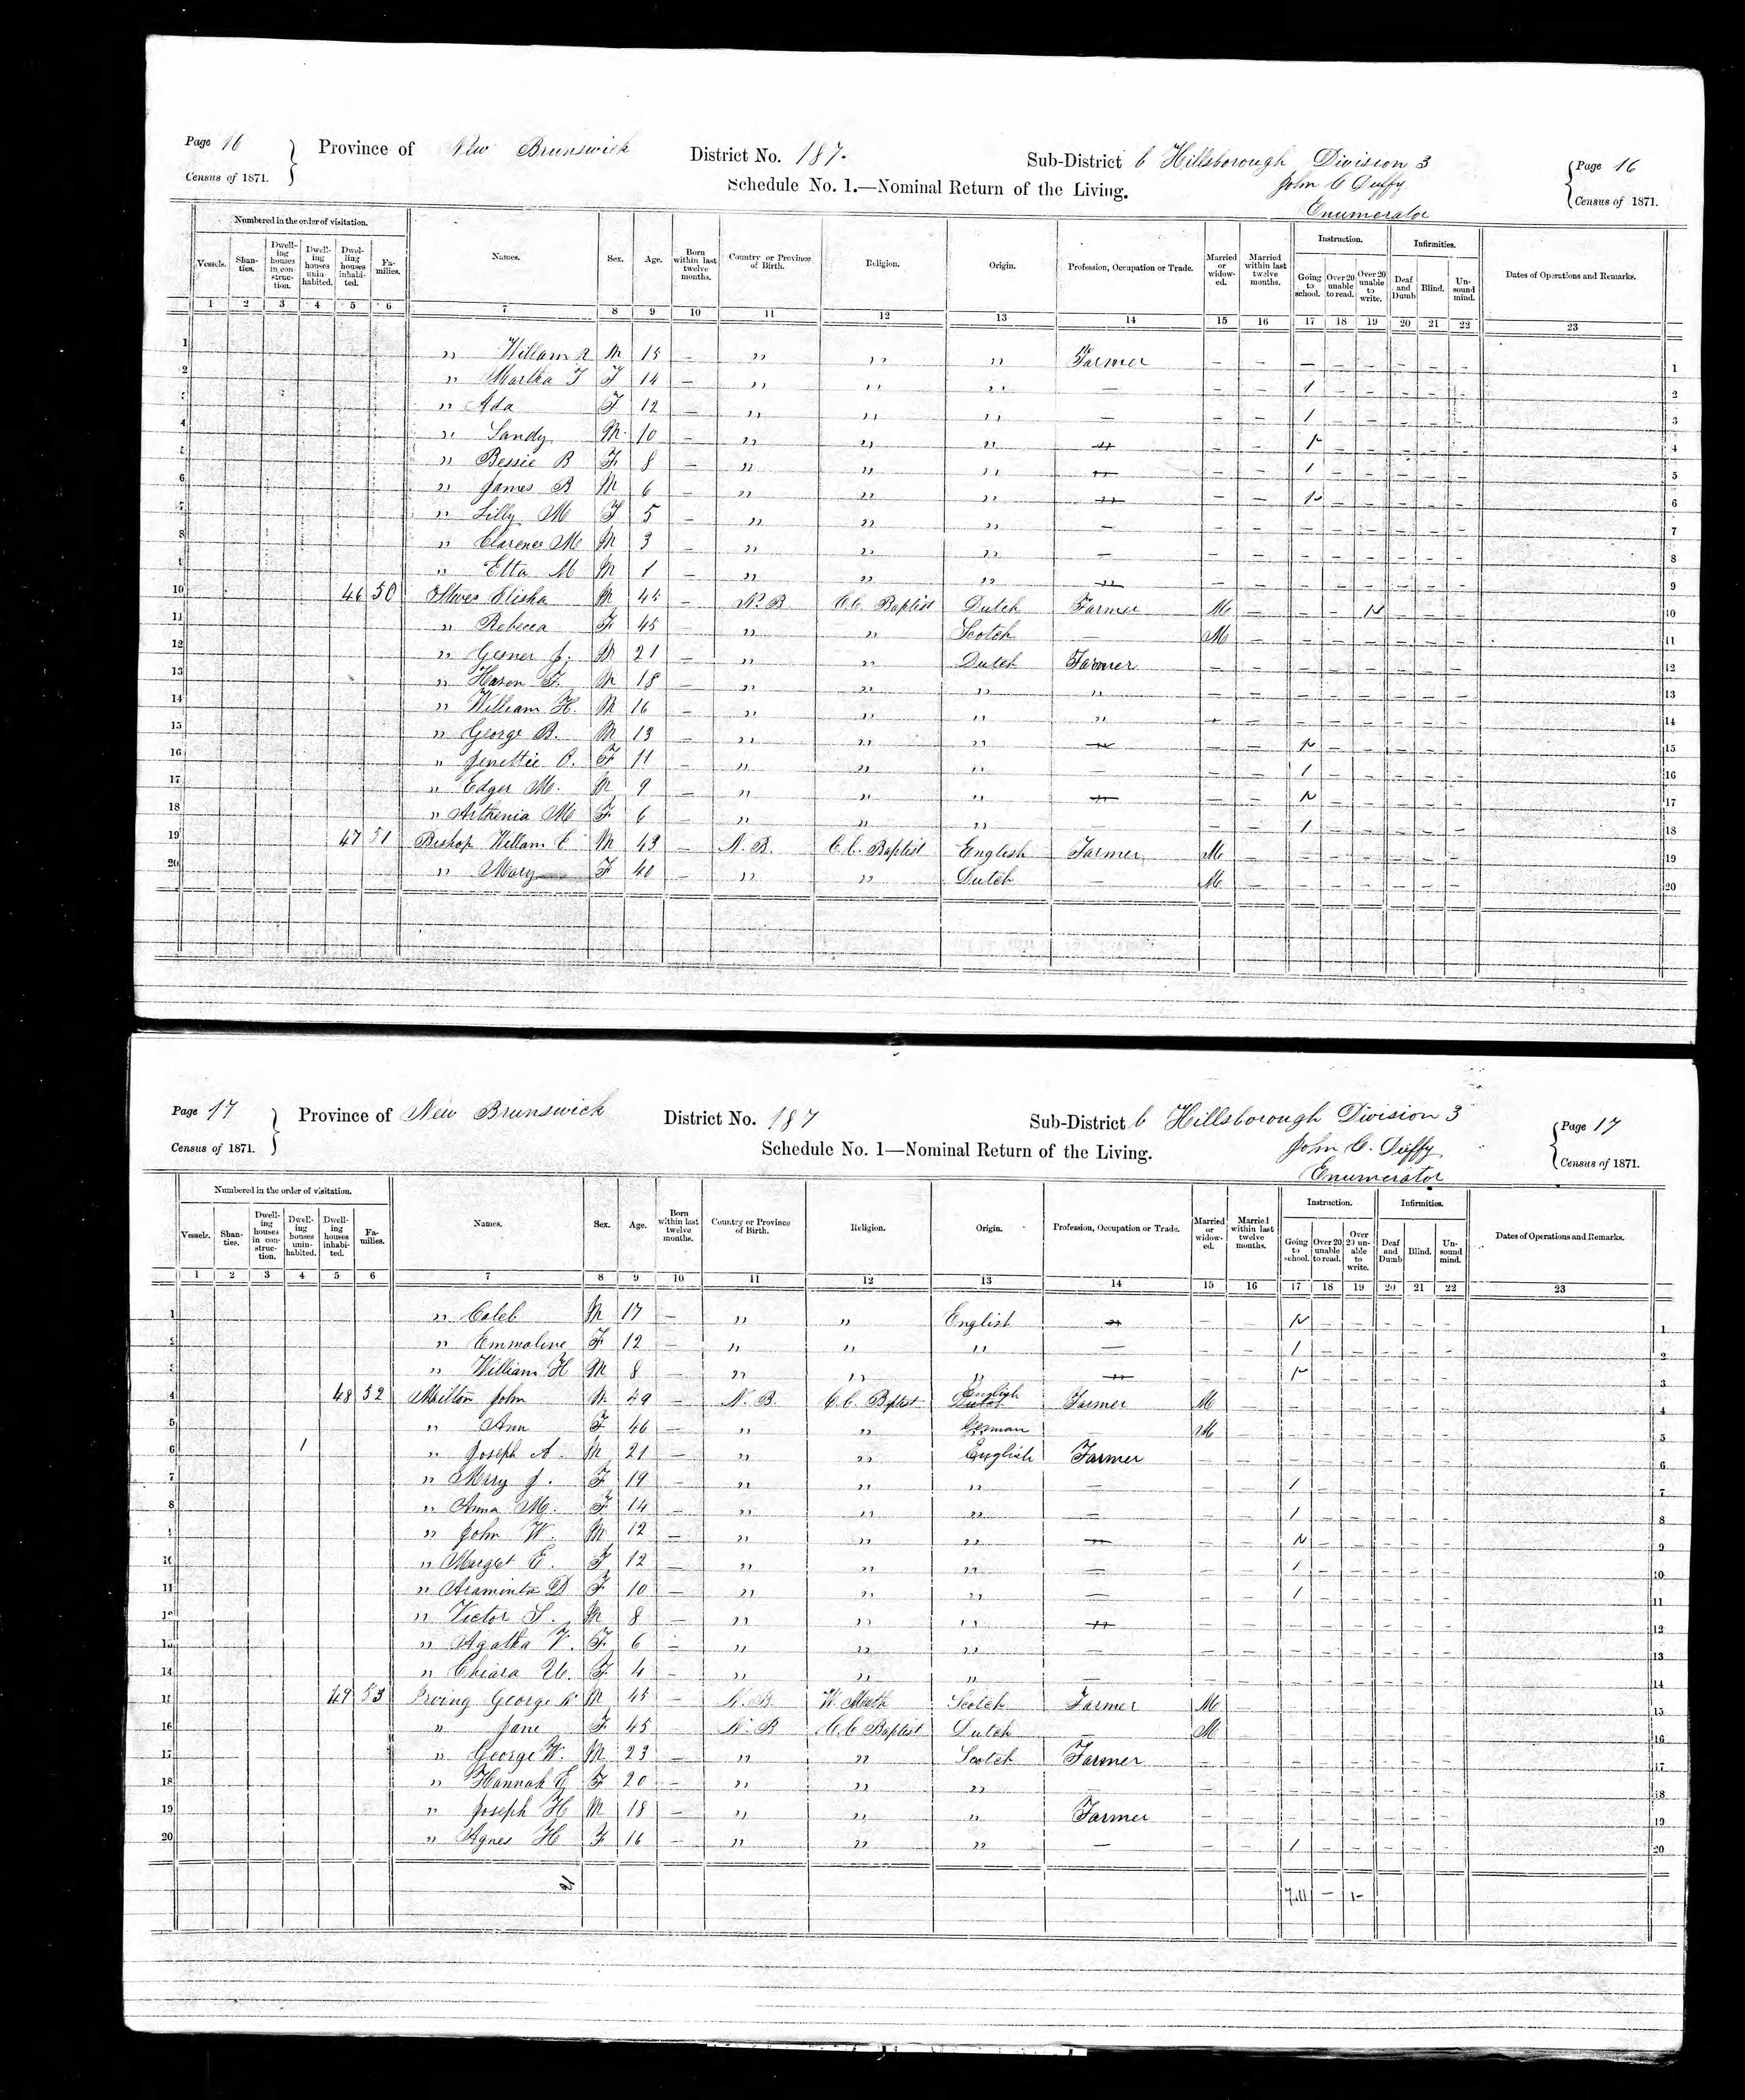 Page 16 Province of New Brunswick District No. 187. Sub-District b Hillsborough Division 3 Page 16
Census of 1871. Schedule No. 1.—Nominal Return of the Living. John C Duffy Census of 1871.
Enumerator
Numbered in the order of visitation. Instruction. Infirmities.
Vessels. Shanties. Dwelling houses in construction. Dwelling houses uninhabited. Dwelling houses inhabited. Families. Names. Sex. Age. Born within last twelve months. Country or Province of Birth. Religion. Origin. Profession, Occupation or Trade. Married or widowed. Married within last twelve months. Going to school. Over 20 unable to read. Over 20 unable to write. Deaf and Dumb Blind. Unsound mind. Dates of Operations and Remarks.
1 2 3 4 5 6 7 8 9 10 11 12 13 14 15 16 17 18 19 20 21 22 23
1 " William R M 15 — " " " Farmer — — — — — — — — 1
2 " Martha J F 14 — " " " — — — 1 — — — — — 2
3 " Ada F 12 — " " " — — — 1 — — — — — 3
4 " Sandy M 10 — " " " " — — 1 — — — — — 4
5 " Bessie B F 8 — " " " " — — 1 — — — — — 5
6 " James B M 6 — " " " " — — 1 — — — — — 6
7 " Lilly M F 5 — " " " — — — — — — — — — 7
8 " Clarence M M 3 — " " " — — — — — — — — — 8
9 " Etta M M 1 — " " " " — — — — — — — — 9
10 46 50 Elisha M 45 — N. B. C. C. Baptist Dutch Farmer M — — — — — — 10
11 " Rebecca F 45 — " " Scotch — M — — — — — — — 11
12 " Gesner J. M 21 — " " Dutch Farmer — — — — — — — — 12
13 " F. M 18 — " " " " — — — — — — — — 13
14 " William H. M 16 — " " " " — — — — — — — — 14
15 " George B. M 13 — " " " " — — 1 — — — — — 15
16 " Jenettie F 11 — " " " — — — 1 — — — — — 16
17 " Edger M. M 9 — " " " " — — 1 — — — — — 17
18 " Arthenia M F 6 — " " " — — — 1 — — — — — 18
19 47 51 Bishop Willam E M 43 — N. B. C. C. Baptist English Farmer M — — — — — — — 19
20 " Mary F 40 — " " Dutch — M — — — — — — — 20
Page 17 Province of New Brunswick District No. 187 Sub-District b Hillsborough Division 3 Page 17
Census of 1871. Schedule No. 1—Nominal Return of the Living. John C. Duffy Census of 1871.
Enumerator
Numbered in the order of visitation. Instruction. Infirmities.
Vessels. Shanties. Dwelling houses in construction. Dwelling houses uninhabited. Dwelling houses inhabited. Families. Names. Sex. Age. Born within last twelve months. Country or Province of Birth. Religion. Origin. Profession, Occupation or Trade. Married or widowed. Married within last twelve months. Going to school. Over 20 unable to read. Over 20 unable to write. Deaf and Dumb Blind. Unsound mind. Dates of Operations and Remarks.
1 2 3 4 5 6 7 8 9 10 11 12 13 14 15 16 17 18 19 20 21 22 23
1 " Caleb M 17 — " " English " — — 1 — — — — — 1
2 " Emmaline F 12 — " " " — — — 1 — — — — — 2
3 " William H M 8 — " " " " — — 1 — — — — — 3
4 48 52 Milton John M 49 — N. B. C. C. Baptist English Farmer M — — — — — — — 4
5 " Ann F 46 — " " German — M — — — — — — — 5
6 1 " Joseph A. M 21 — " " English Farmer — — — — — — — — 6
7 " Mary J. F 19 — " " " — — — 1 — — — — — 7
8 " Anna M. F 14 — " " " — — — 1 — — — — — 8
9 " John W. M 12 — " " " " — — 1 — — — — — 9
10 " Margret E. F 12 — " " " — — — 1 — — — — — 10
11 " Araminta D F 10 — " " " — — — 1 — — — — — 11
12 " Victor S. M 8 — " " " " — — — — — — — — 12
13 " Agatha V. F 6 — " " " — — — — — — — — — 13
14 " Chiara U. F 4 — " " " — — — — — — — — — 14
15 49 53 Irving George M 45 — N. B. W. Meth Scotch Farmer M — — — — — — — 15
16 " Jane F 45 — N. B C. C Baptist Dutch — M — — — — — — — 16
17 " George W. M 23 — " " Scotch Farmer — — — — — — — — 17
18 " Hannah E F 20 — " " " — — — — — — — — — 18
19 " Joseph H M 18 — " " " Farmer — — — — — — — — 19
20 " Agnes H F 16 — " " " — — — 1 — — — — — 20